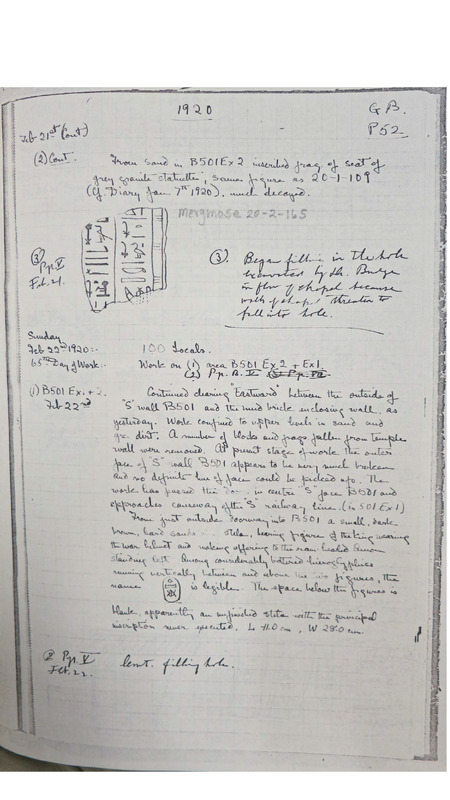 1920
G.B.
P52
Feb. 21st (Cont)
(2) Cont.
From sand in B501 Ex 2 inscribed frag. of seat of
grey granite statuette, same figure as 20-1-109
(Cf. Diary Jan 7th, 1920), much decayed.
Merymose 20-2-165
(3)
Pyr. V
Feb. 21.
(3). Began filling in the hole
excavated by Dr. Budge
in floor of chapel because
walls of chapel threaten to
fall into hole.
Sunday
Feb 22nd 1920:-
65th Day of Work:-
100 Locals.
Work on (1) area B501 Ex 2 + Ex 1
(2) Pyr. B. V
(1) B501 Ex. 1 + 2.
Feb 22nd
Continued clearing "Eastward" between the outside of
"S" wall B501 and the mud brick enclosing wall, as
yesterday. Work confined to upper levels in sand and
dirt. A number of blocks and frags fallen from temple
wall were removed. At present stage of work the outer
face of "S" wall B501 appears to be very much broken
and no definite line of face could be picked up. The
work has passed the door in centre "S" face B501 and
approaches causeway of the "S" railway line. (in 501 Ex 1)
From just outside doorway into B501 a small, dark
brown, hard stela, bearing figure of the king wearing
the war helmet and making offering to the ram-headed Amon
standing left. Among considerably battered hieroglyphics
running vertically between and above the two figures, the
name is legible. The space below the figures is
blank, apparently an unfinished stela with the principal
inscription never executed. L. W 28.0 cm.
2 Pyr. V
Feb. 22.
Cont. filling hole.